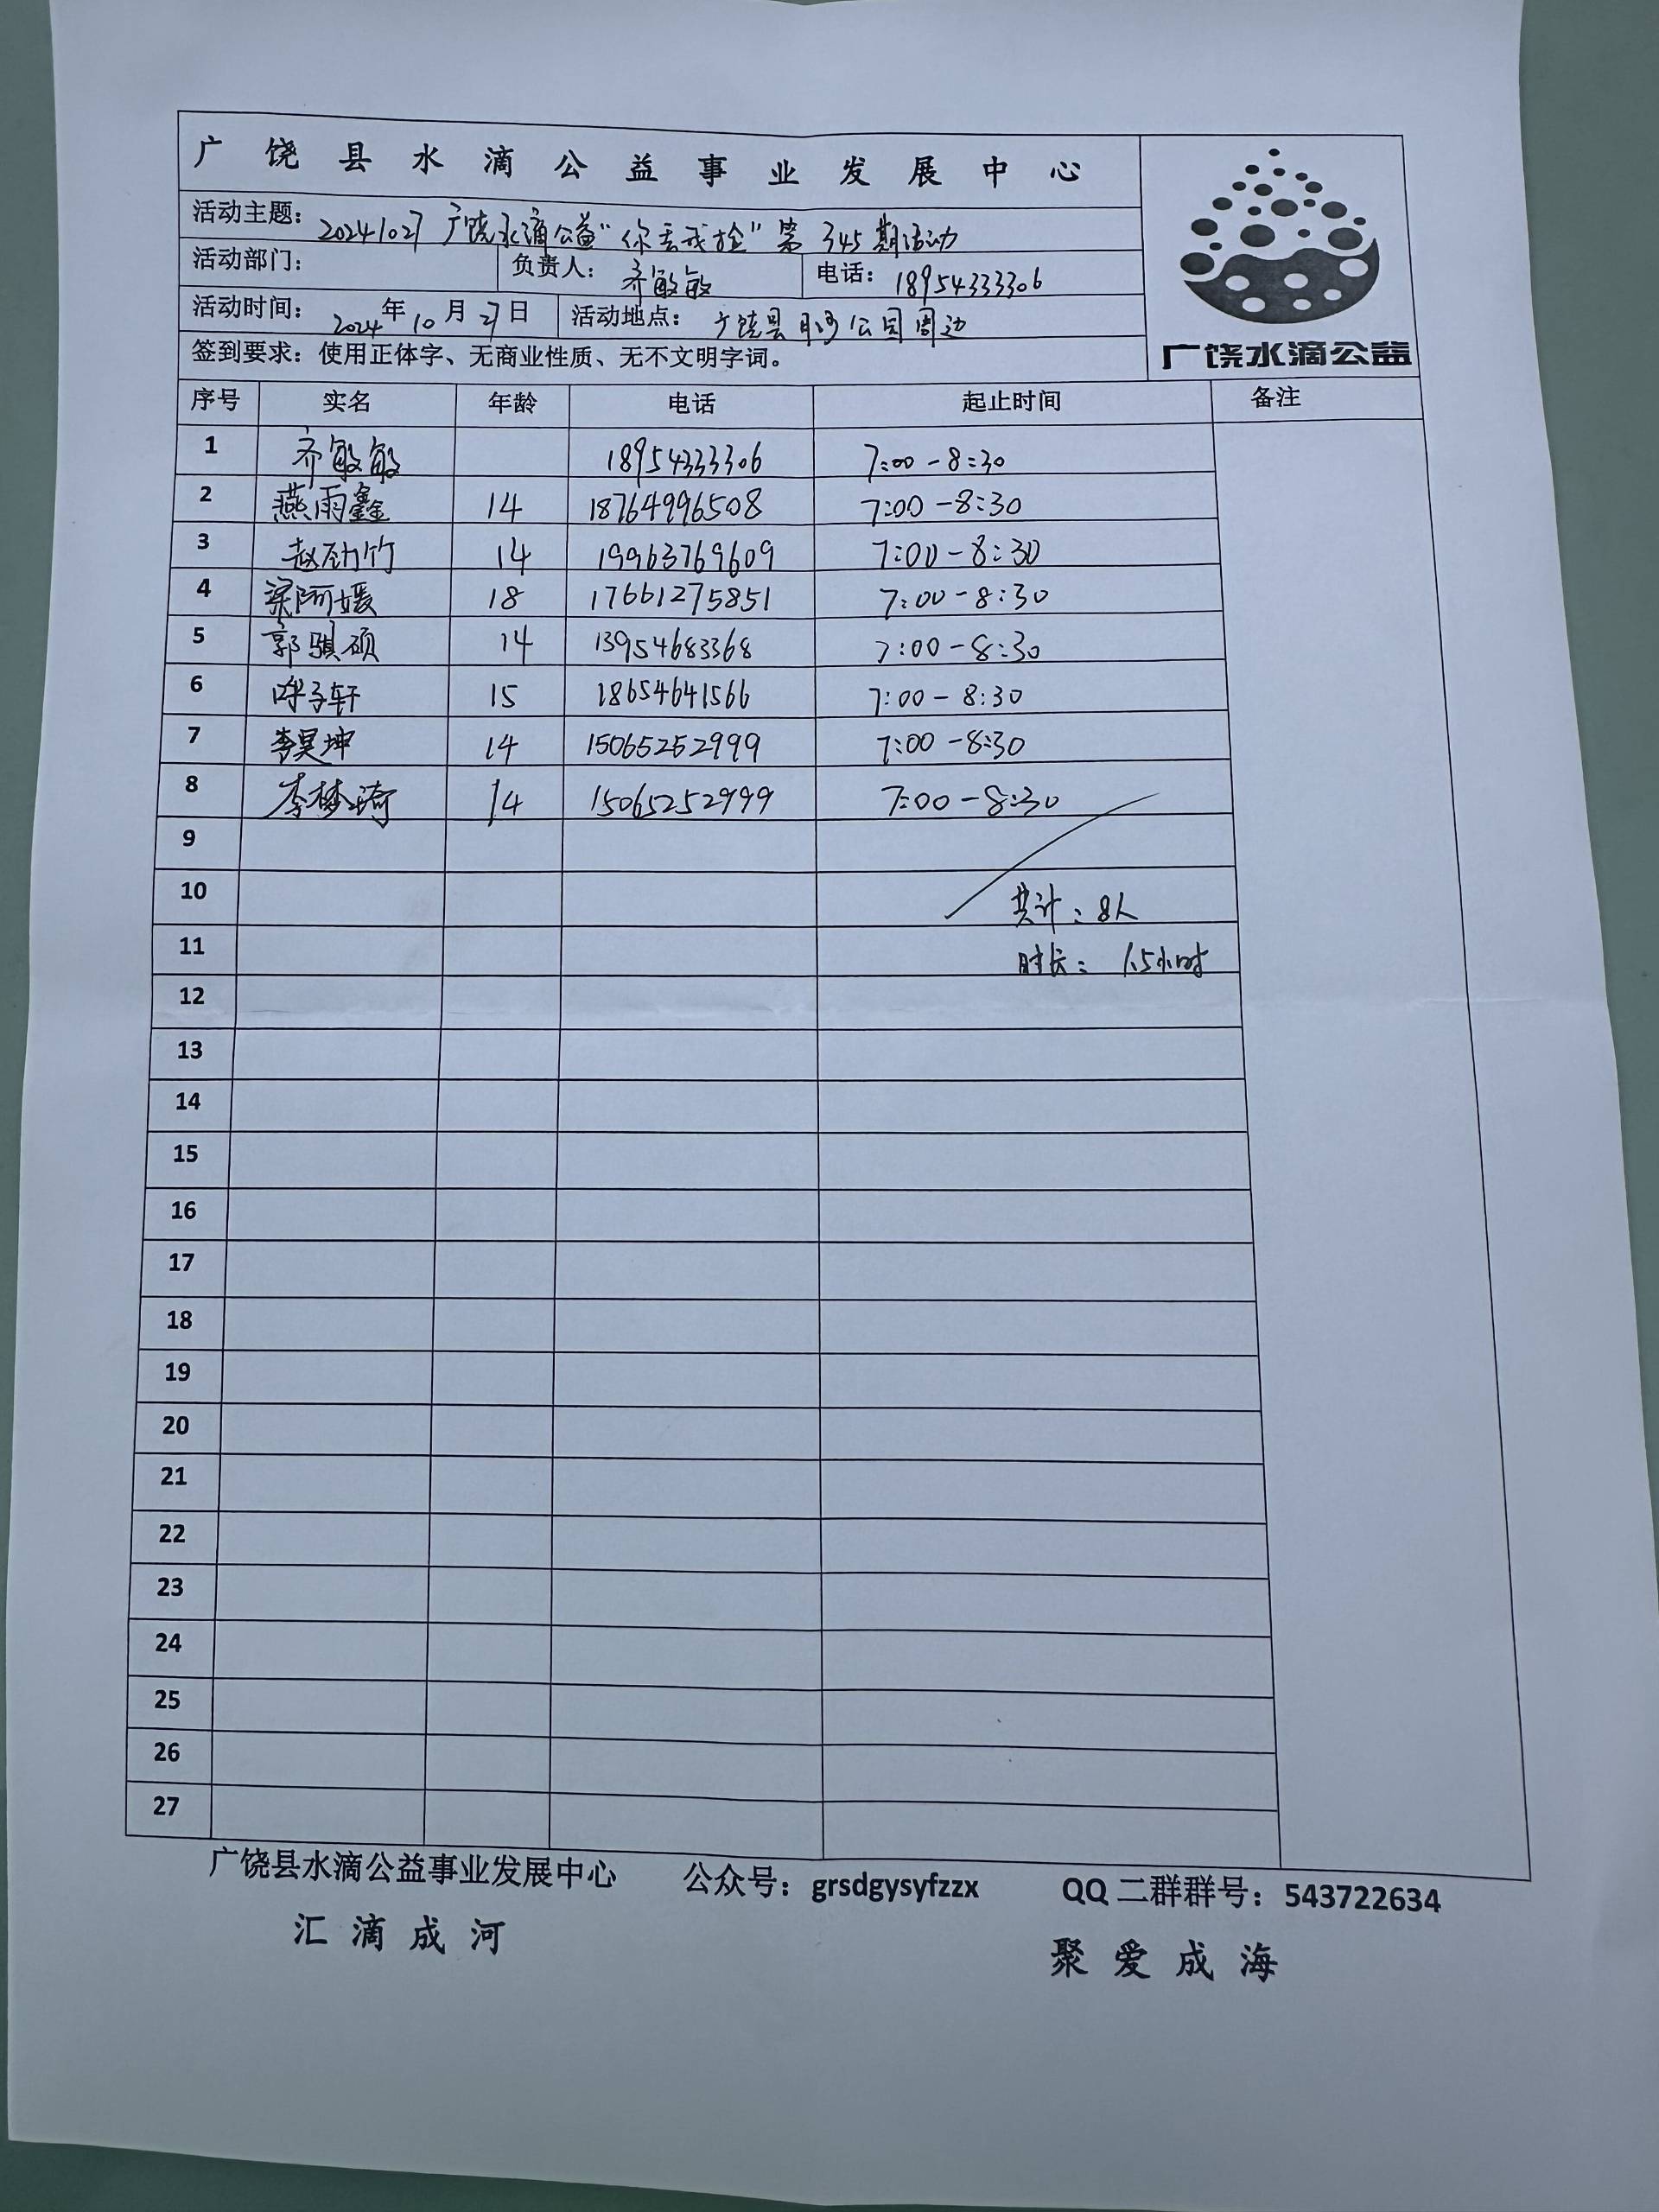 广饶县水滴公益事业发展中心
活动主题：20241027 广饶水滴公益“你丢我捡”第 345 期活动
活动部门： 负责人：齐敏敏 电话：18954333306
活动时间：2024年10月27日 活动地点：广饶县月河公园周边
签到要求：使用正体字、无商业性质、无不文明字词。
广饶水滴公益
序号 实名 年龄 电话 起止时间 备注
1 齐敏敏 18954333306 7:00-8:30
2 燕雨鑫 14 18764996508 7:00-8:30
3 赵劲竹 14 19963769609 7:00-8:30
4 梁阿媛 18 17661275851 7:00-8:30
5 郭骐硕 14 13954683368 7:00-8:30
6 子轩 15 18654641566 7:00-8:30
7 李昊坤 14 15065252999 7:00-8:30
8 李梦琦 14 15065252999 7:00-8:30
9
10 共计：8人
11 时长：1.5小时
12
13
14
15
16
17
18
19
20
21
22
23
24
25
26
27
广饶县水滴公益事业发展中心 公众号：grsdgysyfzzx QQ二群群号：543722634
汇滴成河 聚爱成海